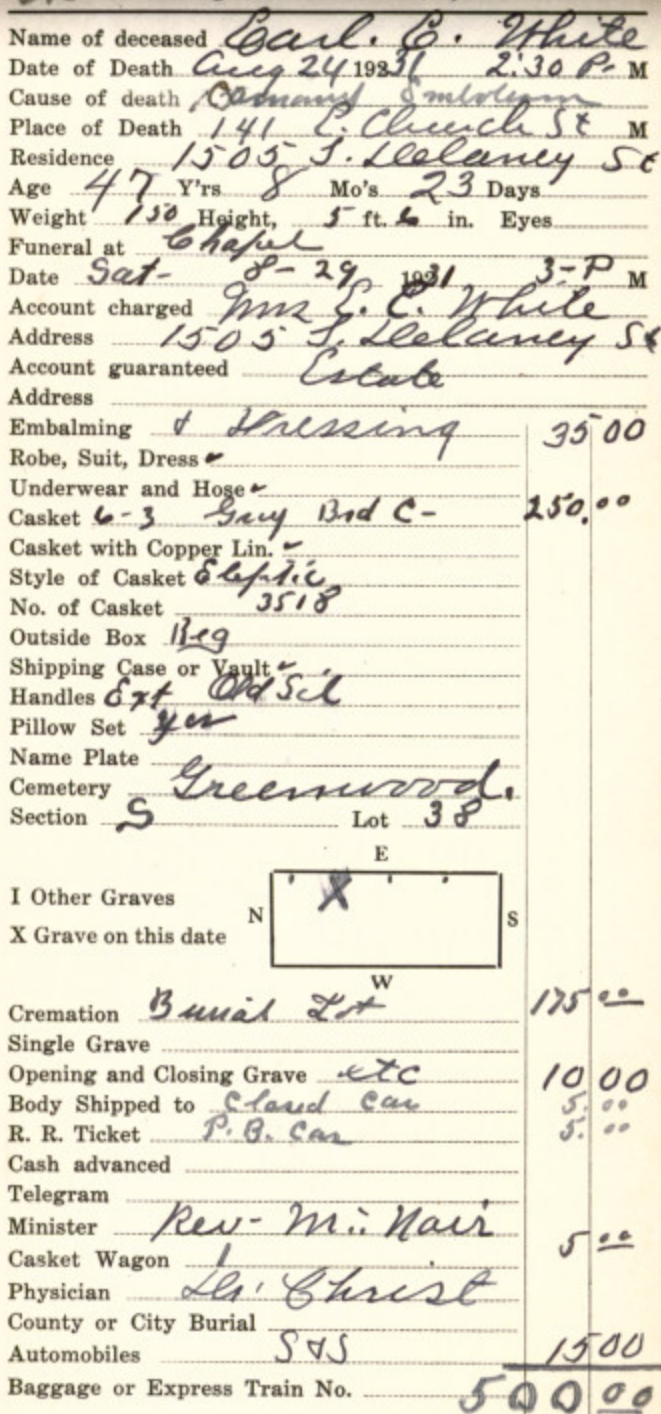 Name of deceased Earl. E. White
Date of Death Aug 24 1931 2:30 P. M
Cause of death Embolism
Place of Death 141 E. Church St M
Residence 1505 S. Delaney St
Age 47 Y'rs 8 Mo's 23 Days
Weight 150 Height, 5 ft. 6 in. Eyes
Funeral at Chapel
Date Sat- 8-29 1931 3-P M
Account charged Mrs E. E. White
Address 1505 S. Delaney St
Account guaranteed Estate
Address
Embalming & Dressing 35 00
Robe, Suit, Dress
Underwear and Hose
Casket 6-3 Grey Brd C- 250.00
Casket with Copper Lin.
Style of Casket Eleptic
No. of Casket 3518
Outside Box Reg
Shipping Case or Vault
Handles Ext Old Sil
Pillow Set yes
Name Plate
Cemetery Greenwood.
Section S Lot 38
E
I Other Graves
N X S
X Grave on this date
W
Cremation Burial Lot 175 00
Single Grave
Opening and Closing Grave etc 10 00
Body Shipped to Closed Car 5.00
R. R. Ticket P. B. Car 5.00
Cash advanced
Telegram
Minister Rev- Mc Nair 5 00
Casket Wagon
Physician Dr. Christ
County or City Burial
Automobiles S & S 15 00
Baggage or Express Train No. 500 00